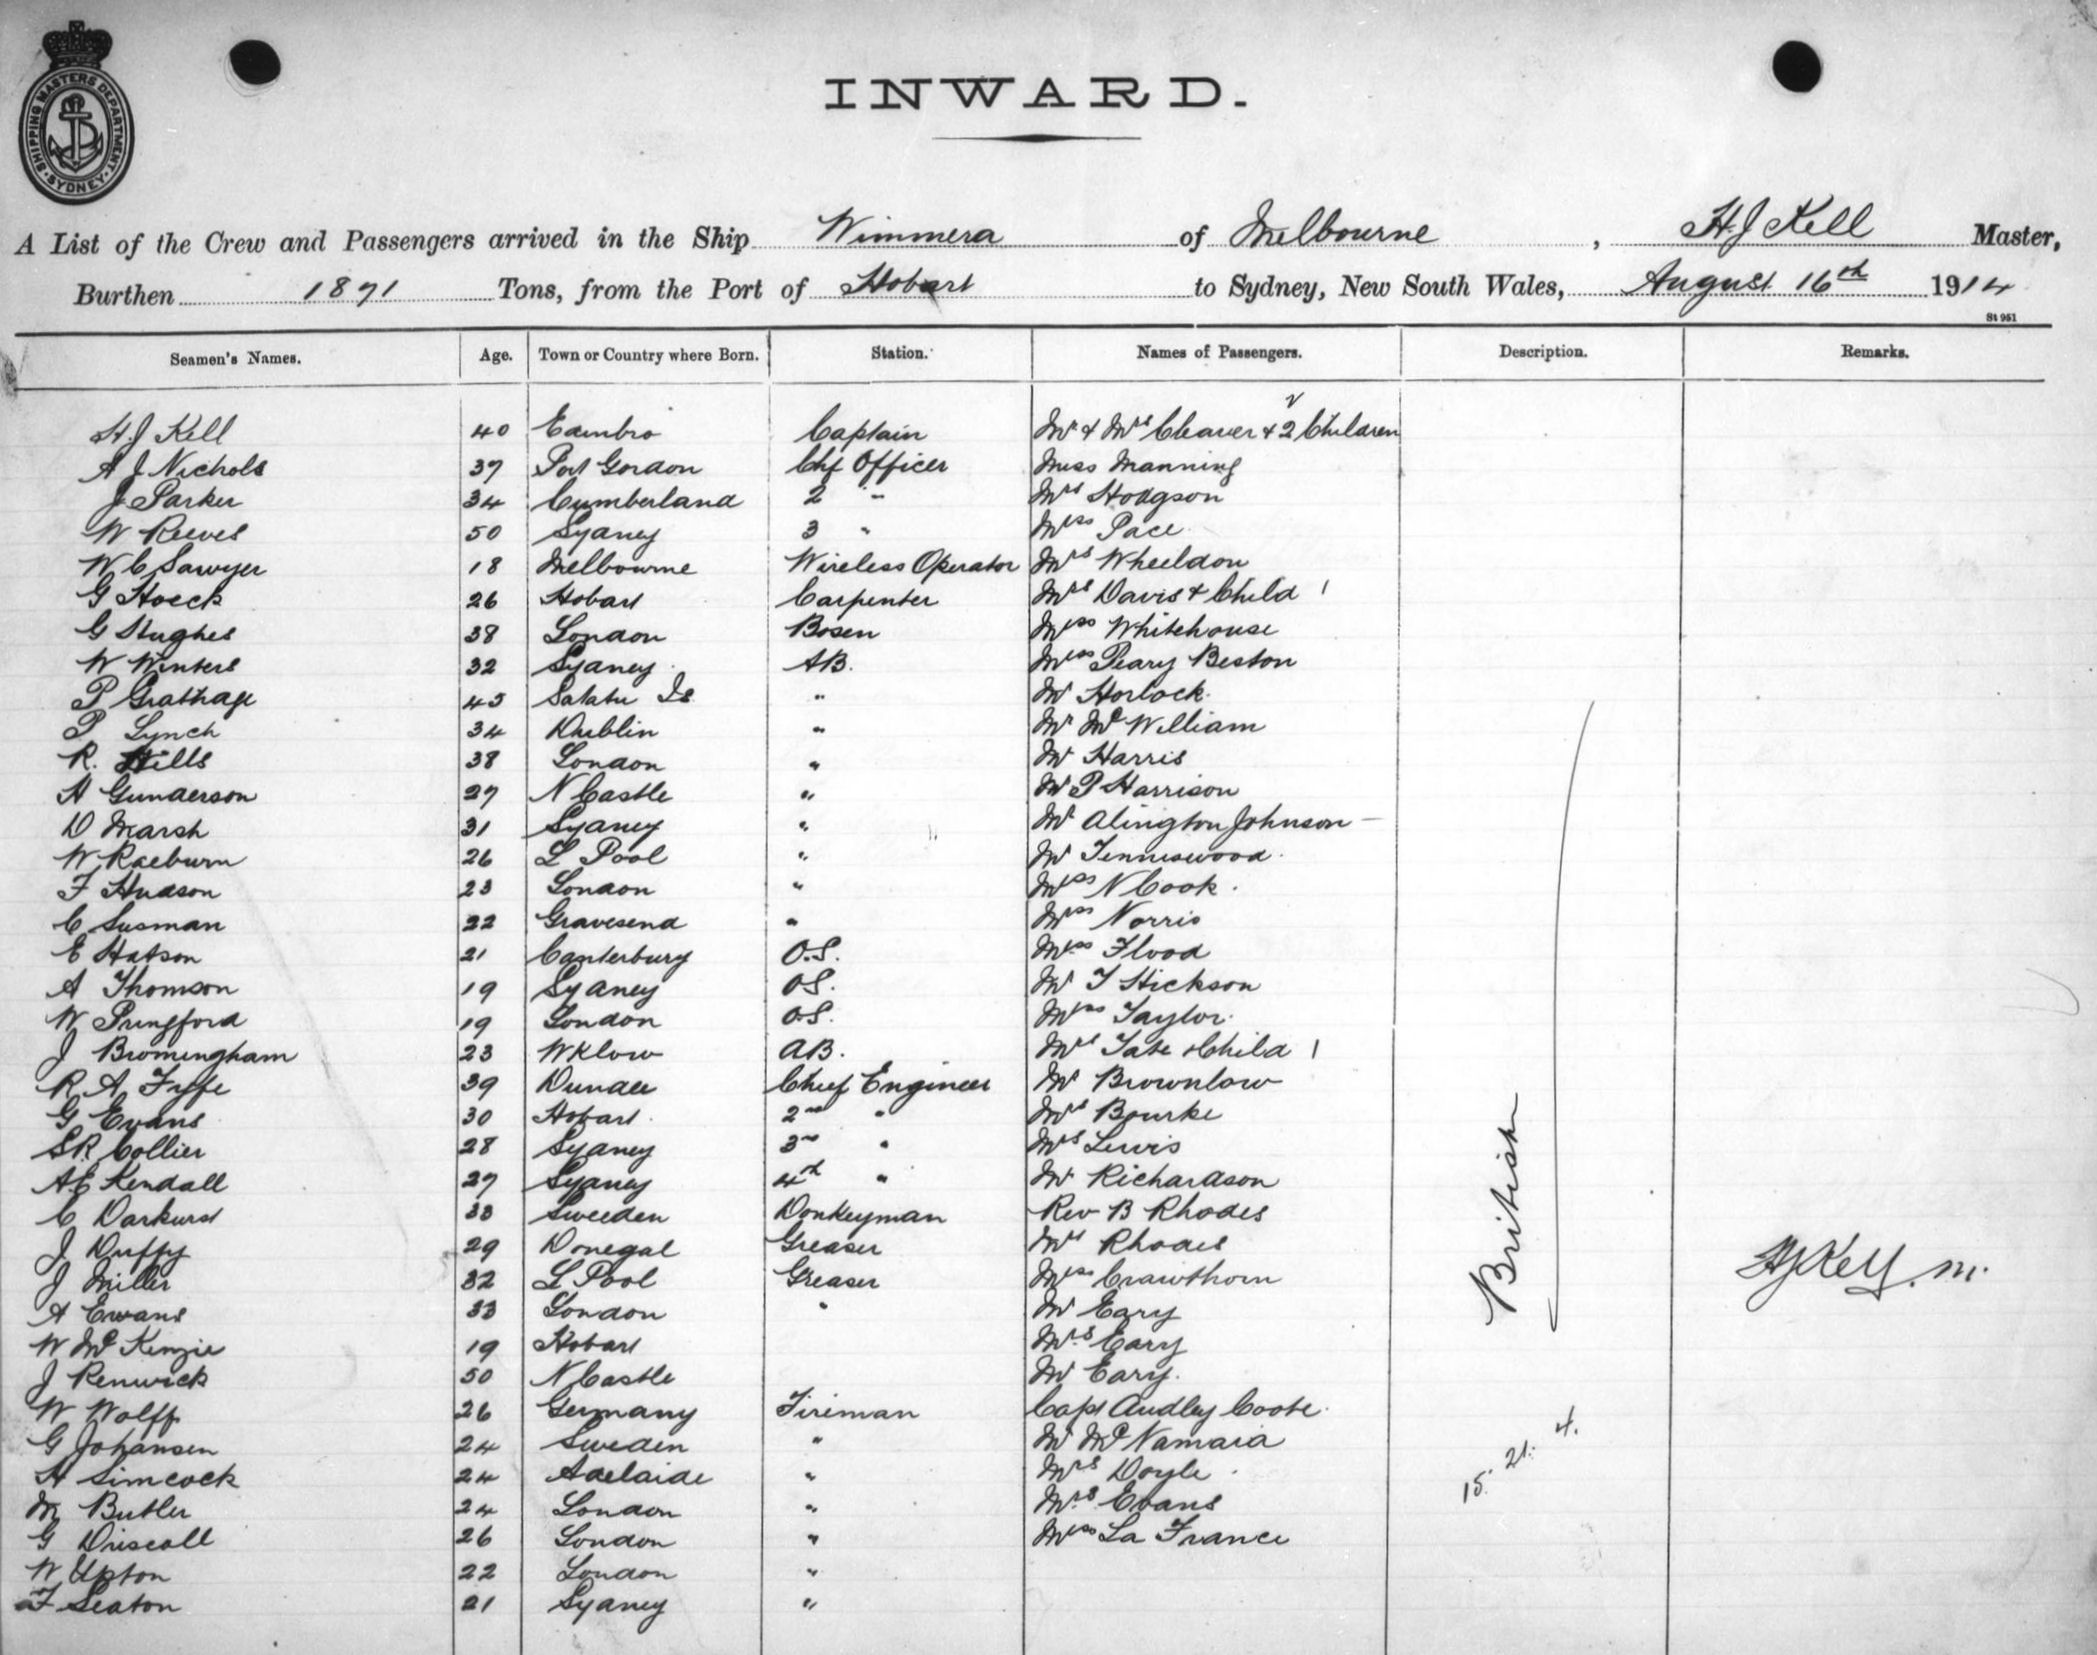 SHIPPING MASTERS DEPARTMENT
SYDNEY
INWARD.
A List of the Crew and Passengers arrived in the Ship Wimmera of Melbourne, H.J Kell Master,
Burthen 1891 Tons, from the Port of Hobart to Sydney, New South Wales, August 16th 1914
St 951
Seamen's Names. Age. Town or Country where Born. Station. Names of Passengers. Description. Remarks.
H.J Kell 40 Edinbro Captain Mr & Mrs Cleaver & 2 Children
A J Nichols 37 Port Gordon Chf Officer Miss Manning
J Parker 34 Cumberland 2 " Mrs Hodgson
W Reeves 50 Sydney 3 " Miss Pace
W C Sawyer 18 Melbourne Wireless Operator Mrs Wheeldon
G Hoeck 26 Hobart Carpenter Mrs Davis & Child 1
G Hughes 38 London Bosen Miss Whitehouse
W Winters 32 Sydney AB. Miss Peary Beston
P 45 Is " Mr Horlock
P Lynch 34 Dublin " Mr McWilliam
R. Hills 38 London " Mr Harris
A Gunderson 27 N Castle " Mr P Harrison
D Marsh 31 Sydney " Mr Alington Johnson
W Raeburn 26 L Pool " Mr Tenniswood
F Hudson 23 London " Miss N Cook
C Susman 22 Gravesend " Miss Norris
E Hatson 21 Canterbury O.S. Miss Flood
A Thomson 19 Sydney OS. Mr T Hickson
W Pringford 19 London O.S. Miss Taylor
J Bromingham 23 Wklow AB. Mrs Tate & Child 1
R A Fyffe 39 Dundee Chief Engineer Mr Brownlow
G Evans 30 Hobart 2nd " Mrs Bourke
S R Collier 28 Sydney 3rd " Mrs Lewis
A E Kendall 27 Sydney 4th " Mr Richardson
C Darkurst 33 Sweeden Donkeyman Rev B Rhodes
J Duffy 29 Donegal Greaser Mrs Rhodes
J Miller 32 L Pool Greaser Miss Crawthorn
A Ewans 33 London " Mr Eary
W McKenzie 19 Hobart Mrs Eary
J Renwick 50 N Castle Mr Eary
W Wolff 26 Germany Fireman Capt Audley Coote
G Johansen 24 Sweden " Mr McNamara
H Simcock 24 Adelaide " Mrs Doyle
M Butler 24 London " Mrs Evans
G Driscoll 26 London " Miss La France
W Upton 22 London "
F Seaton 21 Sydney "
British
15. 21. 4.
HJKell. M.